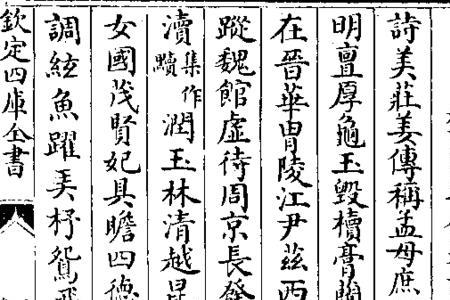 詩美莊姜傳稱孟母庶
明亶厚龜玉毀櫝膏蘭
在晉華胄陵江尹茲西
蹤魏館虛待周京長發
瀆集作黷潤玉林清越昆
女國茂賢妃具瞻四德
調絃魚躍弄杼鴛飛
欽定四庫全書